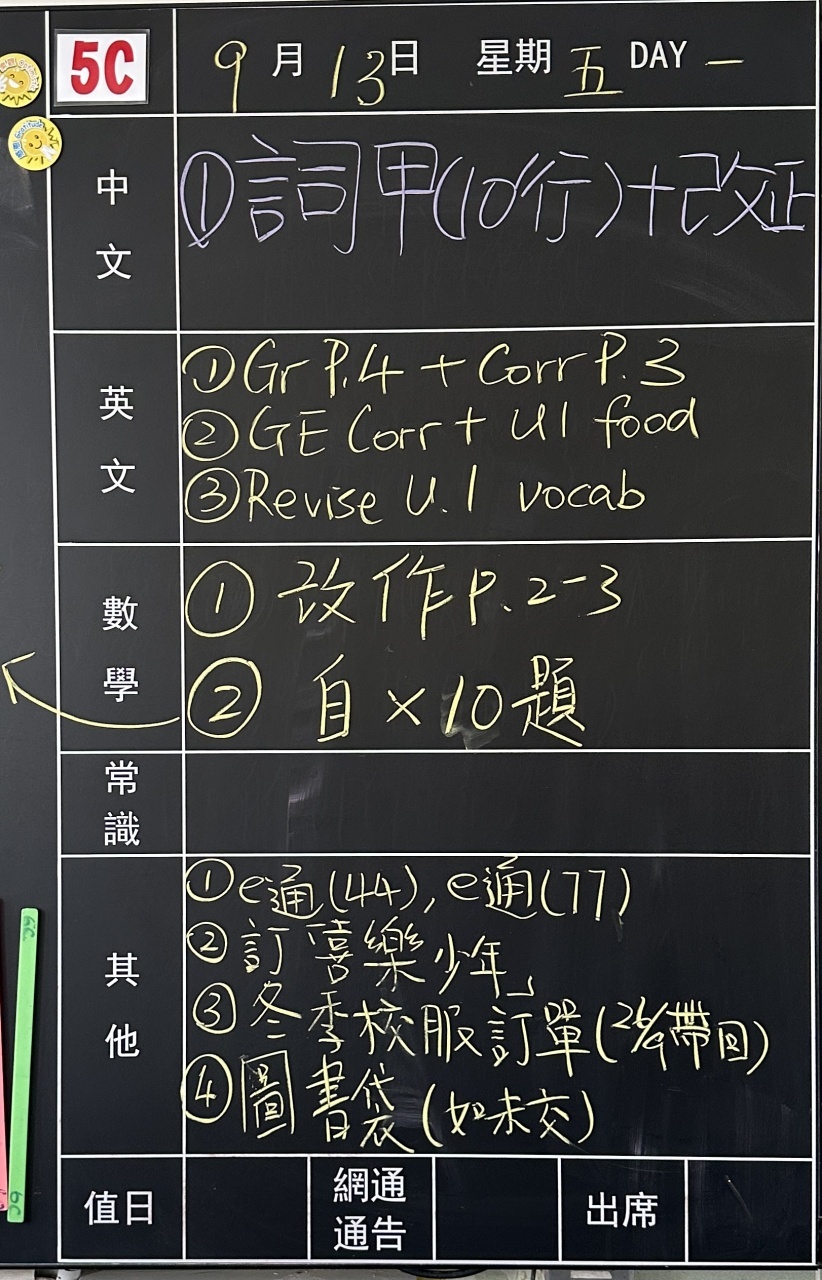 5C 9月13日 星期五 DAY 一
中文
①詞甲(10行)+改正
英文
①Gr P.4 + Corr P.3
②GE Corr + U1 food
③Revise U.1 vocab
數學
① 改作P.2-3
② 自×10題
常識
其他
①e通(44), e通(77)
②訂「喜樂少年」
③冬季校服訂單(26/9帶回)
④圖書袋(如未交)
值日 網通通告 出席